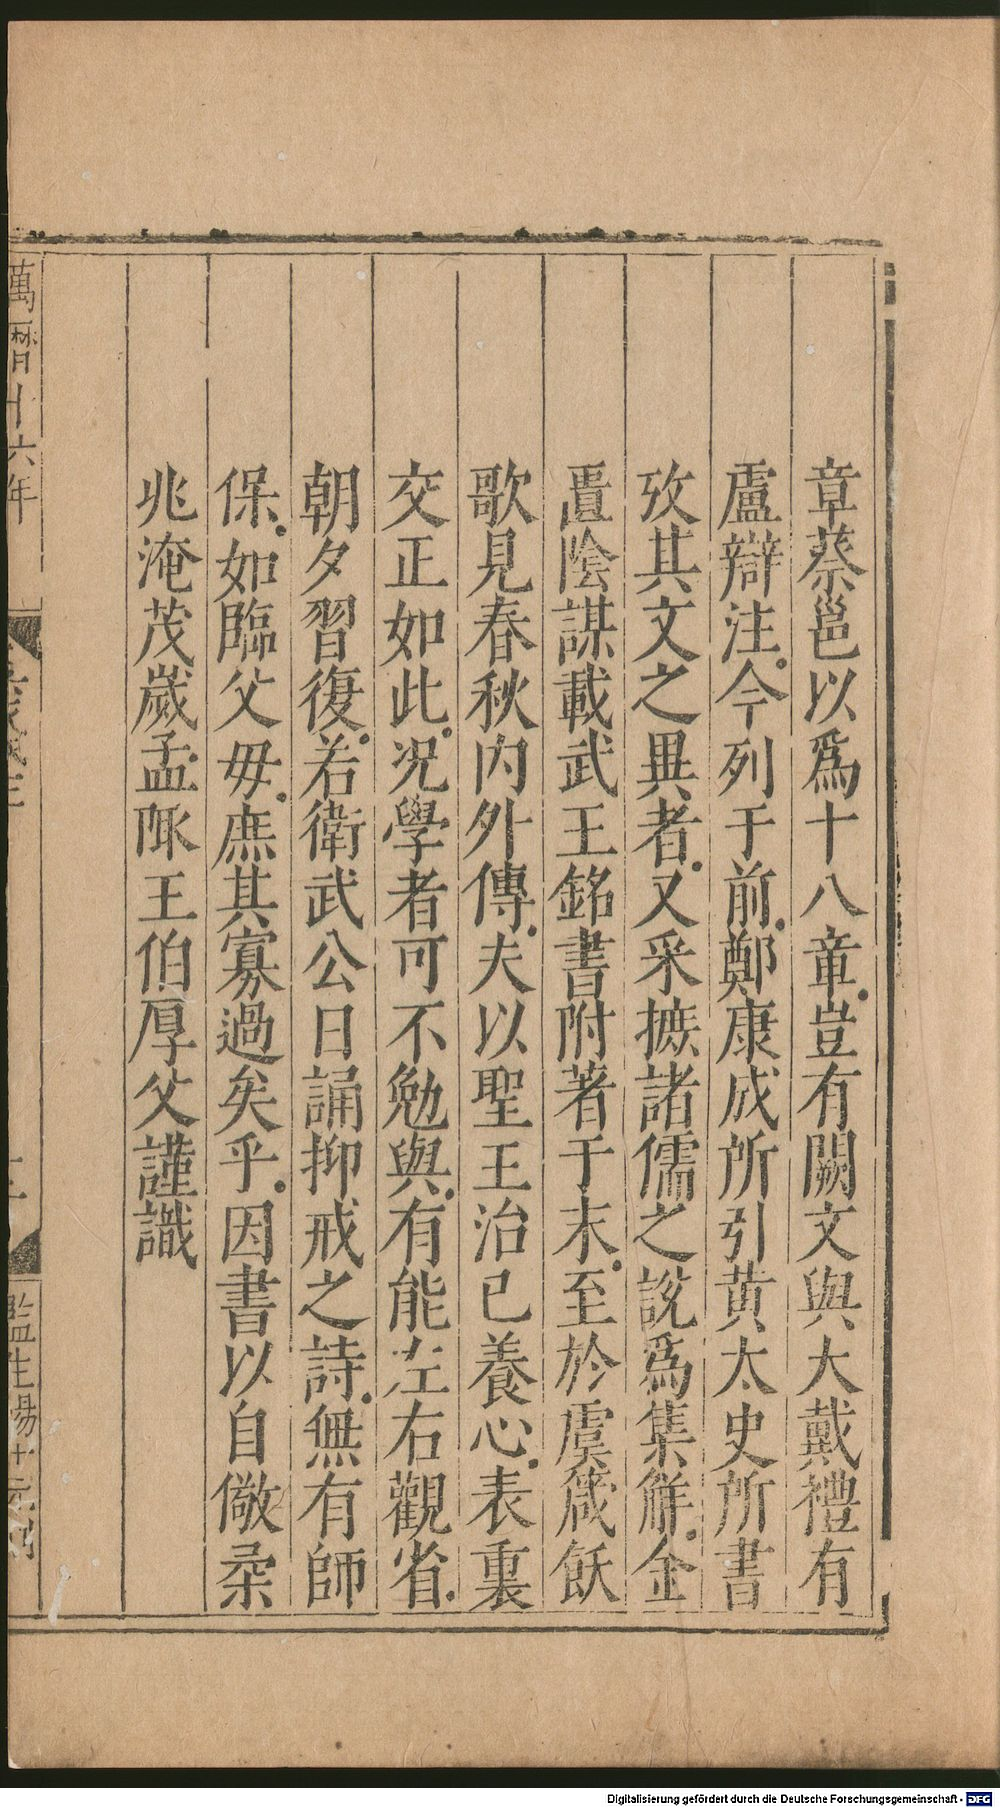 章蔡邕以爲十八章豈有闕文與大戴禮有
盧辯注今列于前鄭康成所引黄太史所書
攷其文之異者又采摭諸儒之說爲集解金
匱陰謀載武王銘書附著于末至於虞箴飫
歌見春秋内外傳夫以聖王治已養心表裏
交正如此況學者可不勉與有能左右觀省
朝夕習復若衛武公日誦抑戒之詩無有師
保如臨父毋庶其寡過矣乎因書以自儆柔
兆淹茂嵗孟陬王伯厚父謹識
萬曆十六年
監生楊
Digitalisierung gefördert durch die Deutsche Forschungsgemeinschaft - DFG